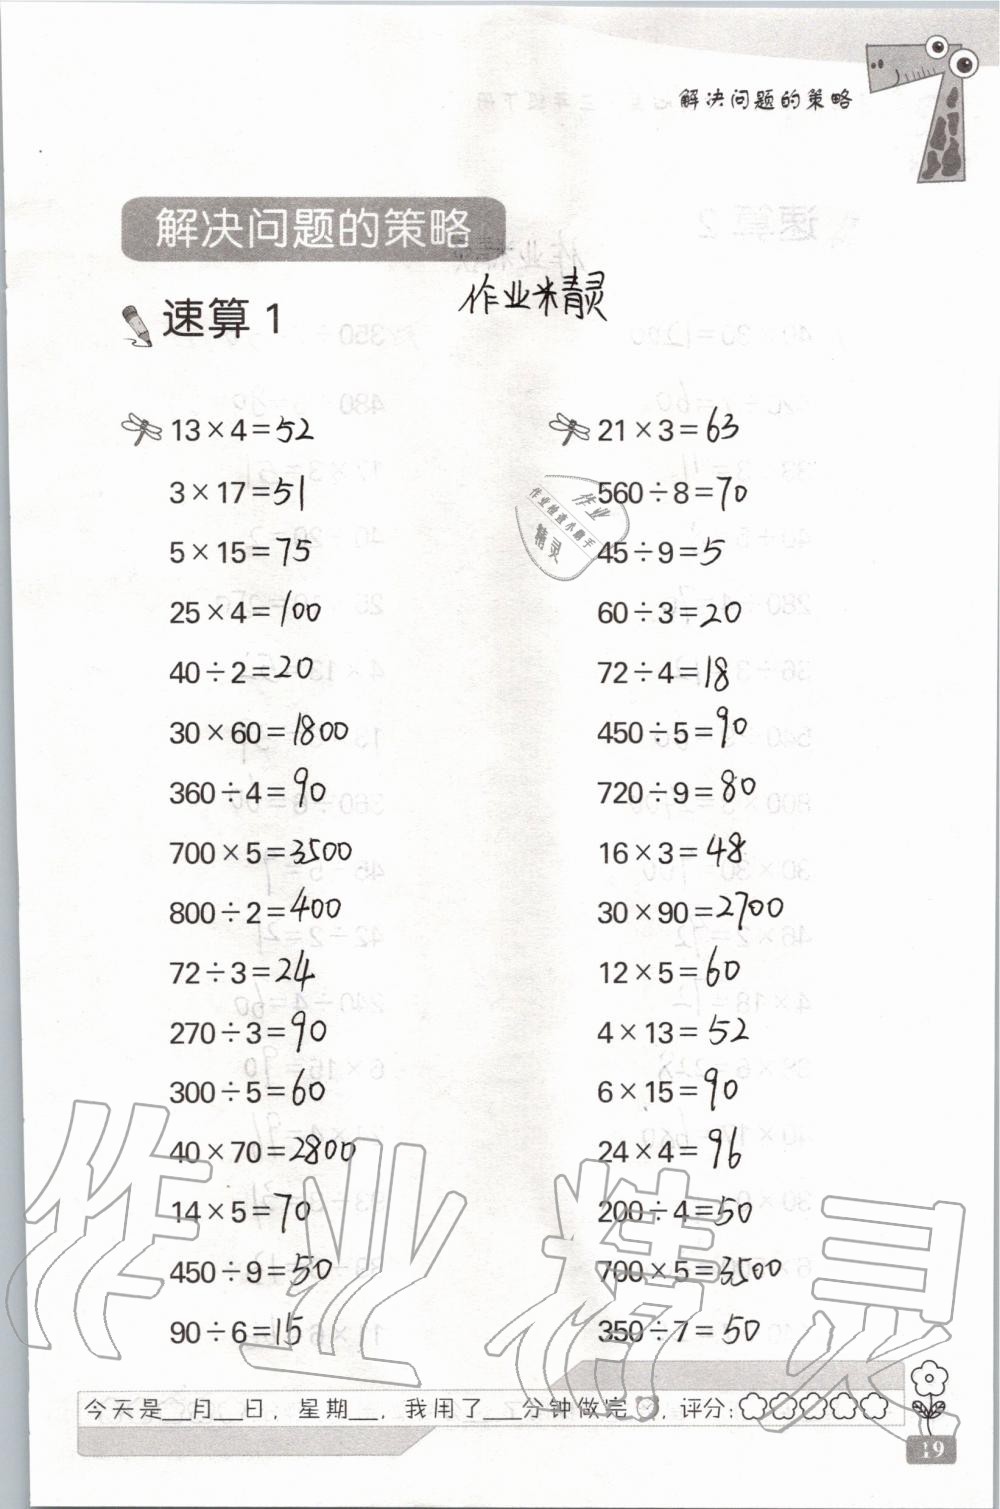 解决问题的策略
解决问题的策略
速算 1
作业精灵
13×4=52
3×17=51
5×15=75
25×4=100
40÷2=20
30×60=1800
360÷4=90
700×5=3500
800÷2=400
72÷3=24
270÷3=90
300÷5=60
40×70=2800
14×5=70
450÷9=50
90÷6=15
21×3=63
560÷8=70
45÷9=5
60÷3=20
72÷4=18
450÷5=90
720÷9=80
16×3=48
30×90=2700
12×5=60
4×13=52
6×15=90
24×4=96
200÷4=50
700×5=3500
350÷7=50
作业
作业检查小助手
精灵
作业精灵
今天是__月__日，星期__，我用了__分钟做完，评分：
19